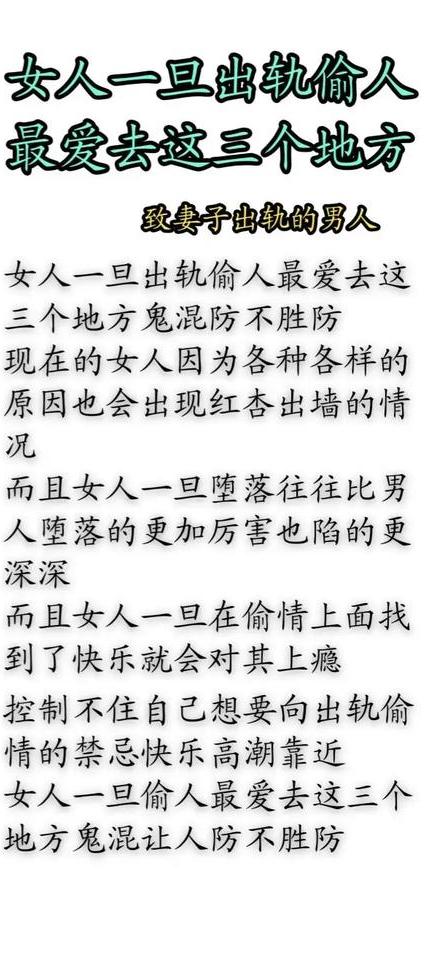 女人一旦出轨偷人
最爱去这三个地方
致妻子出轨的男人
女人一旦出轨偷人最爱去这
三个地方鬼混防不胜防
现在的女人因为各种各样的
原因也会出现红杏出墙的情
况
而且女人一旦堕落往往比男
人堕落的更加厉害也陷的更
深深
而且女人一旦在偷情上面找
到了快乐就会对其上瘾
控制不住自己想要向出轨偷
情的禁忌快乐高潮靠近
女人一旦偷人最爱去这三个
地方鬼混让人防不胜防